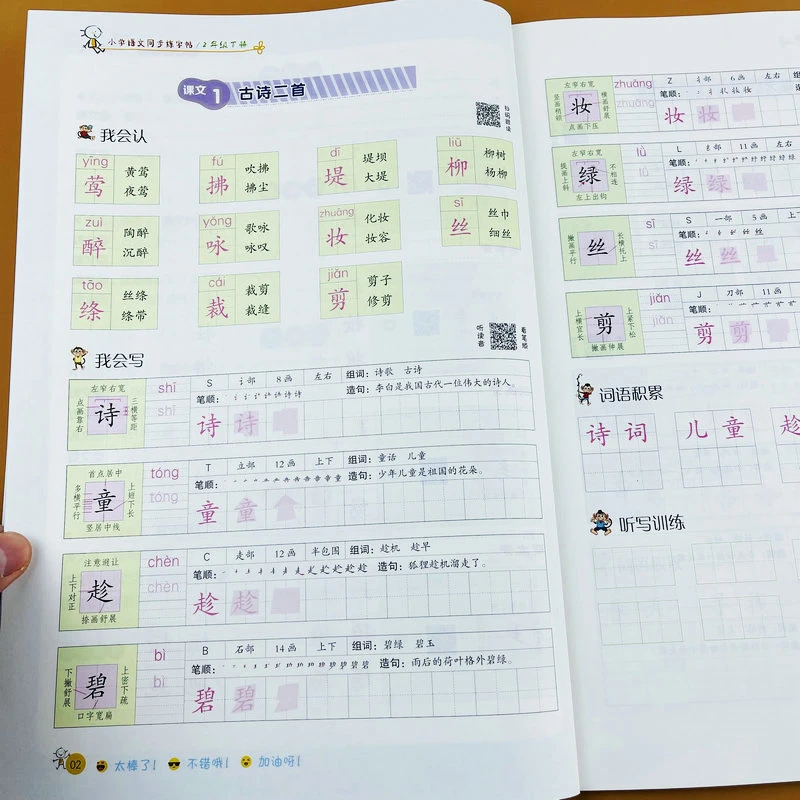 小学语文同步练字帖/2年级下册
课文1 古诗二首
扫码跟读
我会认
yīng fú dī liǔ
莺 黄莺 夜莺 拂 吹拂 拂尘 堤 堤坝 大堤 柳 柳树 杨柳
zuì yóng zhuāng sī
醉 陶醉 沉醉 咏 歌咏 咏叹 妆 化妆 妆容 丝 丝巾 细丝
tāo cái jiǎn
绦 丝绦 绦带 裁 裁剪 裁缝 剪 剪子 修剪
听读音 看笔顺
我会写
左窄右宽 shī S 讠部 8画 左右 组词：诗歌 古诗
点画靠右 诗 三横等距 shī 笔顺： 造句：李白是我国古代一位伟大的诗人。
诗 诗
首点居中 tóng T 立部 12画 上下 组词：童话 儿童
多横平行 童 上短下长 tóng 笔顺： 造句：少年儿童是祖国的花朵。
竖居中线 童 童
注意避让 chèn C 走部 12画 半包围 组词：趁机 趁早
上下对正 趁 chèn 笔顺： 造句：狐狸趁机溜走了。
捺画舒展 趁 趁
bì B 石部 14画 上下 组词：碧绿 碧玉
下撇舒展 碧 上密下疏 bì 笔顺： 造句：雨后的荷叶格外碧绿。
口字宽扁 碧 碧
02 太棒了！ 不错哦！ 加油呀！
左窄右宽 zhuāng Z 丬部 6画 左右
竖画稍锁 妆 横画舒展 zhuāng 笔顺：
点画下压 妆 妆
左窄右宽 lǜ L 纟部 11画 左右
提画上斜 绿 不相连 lǜ 笔顺：
左上出钩 绿 绿
sī S 一部 5画 上下
撇画平行 丝 长横托上 sī 笔顺：
丝 丝
jiǎn J 刀部 11画
上横宜长 剪 上紧下松 jiǎn 笔顺：
撇画伸展 剪 剪
词语积累
诗词 儿童 趁
听写训练